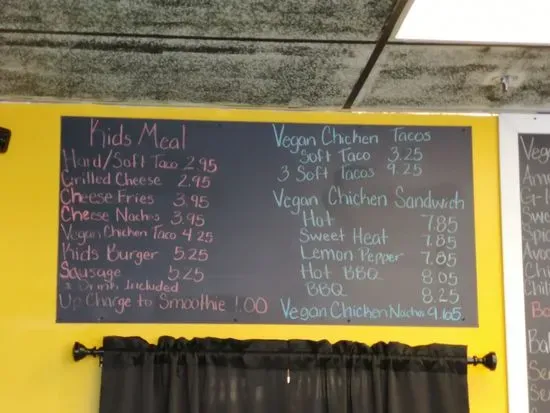 Kids Meal
Hard/Soft Taco 2.95
Grilled Cheese 2.95
Cheese Fries 3.95
Cheese Nachos 3.95
Vegan Chicken Taco 4.25
Kids Burger 5.25
Sausage 5.25
Drink Included
Up Charge to Smoothie 1.00
Vegan Chicken Tacos
Soft Taco 3.25
3 Soft Tacos 9.25
Vegan Chicken Sandwich
Hot 7.85
Sweet Heat 7.85
Lemon Pepper 7.85
Hot BBQ 8.05
BBQ 8.25
Vegan Chicken Nachos 9.65